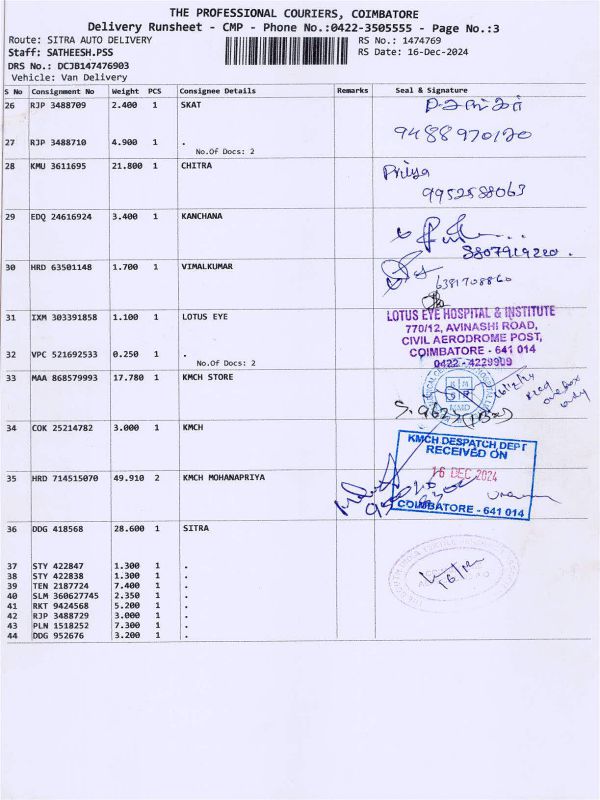 THE PROFESSIONAL COURIERS, COIMBATORE
Delivery Runsheet - CMP - Phone No.:0422-3505555 - Page No.:3
Route: SITRA AUTO DELIVERY
RS No.: 1474769
Staff: SATHEESH.PSS
RS Date: 16-Dec-2024
DRS No.: DCJB147476903
Vehicle: Van Delivery
S No Consignment No Weight PCS Consignee Details Remarks Seal & Signature
26 RJP 3488709 2.400 1 SKAT
27 RJP 3488710 4.900 1 . 9488970120
No.Of Docs: 2
28 KMU 3611695 21.800 1 CHITRA Priya
9952588063
29 EDQ 24616924 3.400 1 KANCHANA
8807919220.
30 HRD 63501148 1.700 1 VIMALKUMAR
6381708860
31 IXM 303391858 1.100 1 LOTUS EYE LOTUS EYE HOSPITAL & INSTITUTE
770/12, AVINASHI ROAD,
CIVIL AERODROME POST,
COIMBATORE - 641 014
32 VPC 521692533 0.250 1 .
No.Of Docs: 2 0422 - 4229909
33 MAA 868579993 17.780 1 KMCH STORE 16/12/24
34 COK 25214782 3.000 1 KMCH
KMCH DESPATCH DEPT
RECEIVED ON
16 DEC 2024
35 HRD 714515070 49.910 2 KMCH MOHANAPRIYA
COIMBATORE - 641 014
36 DDG 418568 28.600 1 SITRA
37 STY 422847 1.300 1 .
38 STY 422838 1.300 1 . 16/12
39 TEN 2187724 7.400 1 .
40 SLM 360627745 2.350 1 .
41 RKT 9424568 5.200 1 .
42 RJP 3488729 3.000 1 .
43 PLN 1518252 7.300 1 .
44 DDG 952676 3.200 1 .